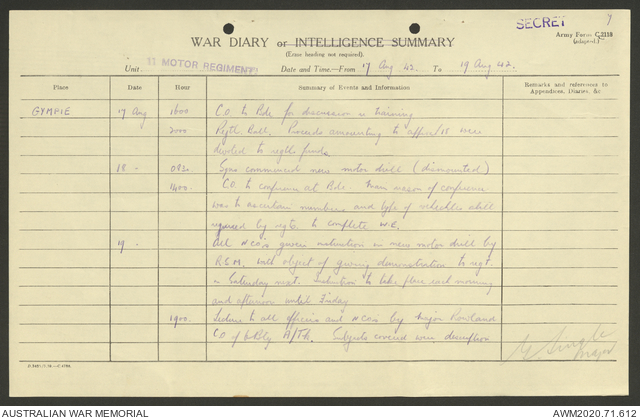 SECRET 9
Army Form C.2118
(adapted.)
WAR DIARY or INTELLIGENCE SUMMARY
(Erase heading not required).
Unit. 11 MOTOR REGIMENT Date and Time—From 17 Aug 42. To 19 Aug 42.
Place Date Hour Summary of Events and Information Remarks and references to
Appendices, Diaries, &c
GYMPIE 17 Aug 1600 C.O. to Bde for discussion on training
2000 Regtl Ball. Proceeds amounting to approx were
devoted to regtl funds
18 - 0830 Sqns commenced new motor drill (dismounted)
1400 C.O. to conference at Bde. Main reason of conference
was to ascertain numbers and type of vehicles still
required by regt to complete W.E.
19 - All NCOs given instruction in new motor drill by
R.S.M. with object of giving demonstration to regt.
on Saturday next. Instruction to take place each morning
and afternoon until Friday
1900. Lecture to all officers and NCOs by Major Rowland
CO of Bty A/Tk. Subjects covered were description
Major
AUSTRALIAN WAR MEMORIAL AWM2020.71.612